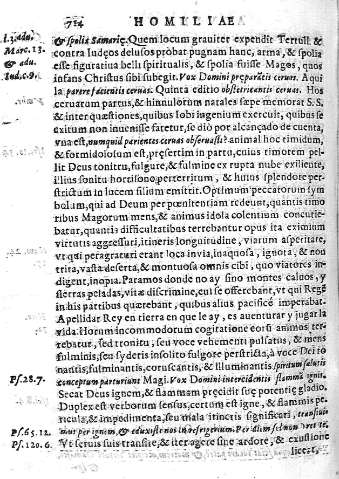 714 HOMILIAE
l. 3. adu.
Marc. 13.
& adu.
Iud. c. 9.
& spolia Samariæ. Quem locum grauiter expendit Tertull. &
contra Iudęos delusos probat pugnam hanc, arma, & spolia
esse figuratiua belli spiritualis, & spolia fuisse Magos, quos
infans Christus sibi subegit. Vox Domini præparātis ceruos. Aqui
la parere facientis ceruas. Quinta editio obstetricantis ceruas. Hos
ceruarum partus, & hinnulorum natales sæpe memorat S. S.
& inter quæstiones, quibus Iobi ingenium exercuit, quibus se
exitum non inuenisse fatetur, se dió por alcançado de cuenta,
vna est, nunquid parientes ceruas obseruasti? animal hoc timidum,
& formidolosum est, præsertim in partu, cuius timorem pe-
llit Deus tonitru, fulgure, & fulmine ex rupta nube exiliente,
illius sonitu hortisono perterritum, & huius splendore per-
strictum in lucem filium emittit. Optimum peccatorum sym
bolum, qui ad Deum per pœnitentiam redeunt, quantis timo
ribus Magorum mens, & animus idola colentium concutie-
batur, quantis difficultatibus terrebantur opus ita eximium
virtutis aggressuri, itineris longitudine, viarum asperitate,
vt qui peragraturi erant loca inuia, inaquosa, ignota, & non
trita, vasta deserta, & montuosa omnis cibi, quo viatores in-
digent, inopia. Paramos donde no ay sino montes caluos, y
sierras peladas, vitæ discrimine, cui se offerebant, vt qui Regē
in his partibus quærebant, quibus alius pacificè imperabat.
Apellidar Rey en tierra en que le ay, es auenturar y jugar la
vida. Horum incommodorum cogitatione eorū animus ter-
rebatur, sed tronitu, seu voce vehementi pulsatus, & mens
fulminis, seu syderis insolito fulgore perstricta, à voce Dei to
nantis, fulminantis, coruscantis, & illuminantis spiritum salutis
Ps. 28. 7. conceptum parturiunt Magi. Vox Domini intercidentis flammā ignis.
Secat Deus ignem, & flammam præcidit suę potentię gladio.
Duplex est verborum sensus, certum est igne, & flammis pe-
ricula, & impedimenta, seu mala itineris significari, transiui
Ps. 65. 12. mus per ignem, & eduxisti nos in refrigerium. Per diem sol non vret te.
Ps. 120. 6. Vt seruis suis transitę, & iter agere sine ardore, & exustione
liceat,